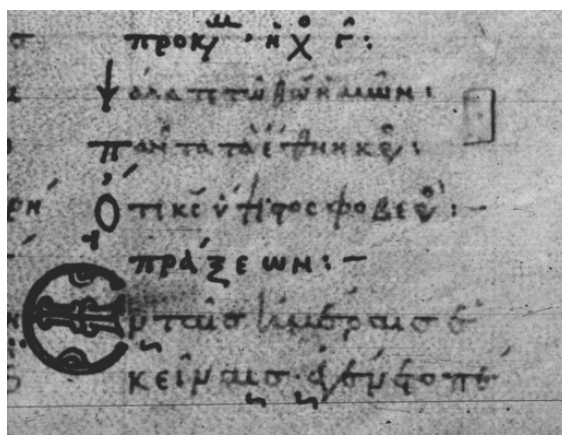 προκμ ηχ γ:
ψάλατε τῶ θῶ ἡμῶν:
πάντα τὰ ἔθνη κρ:
ὅτι κς ὕψιστος φοβερ:–
πράξεων:–
ἐν ταῖς ἡμέραις ἐ
κείναις